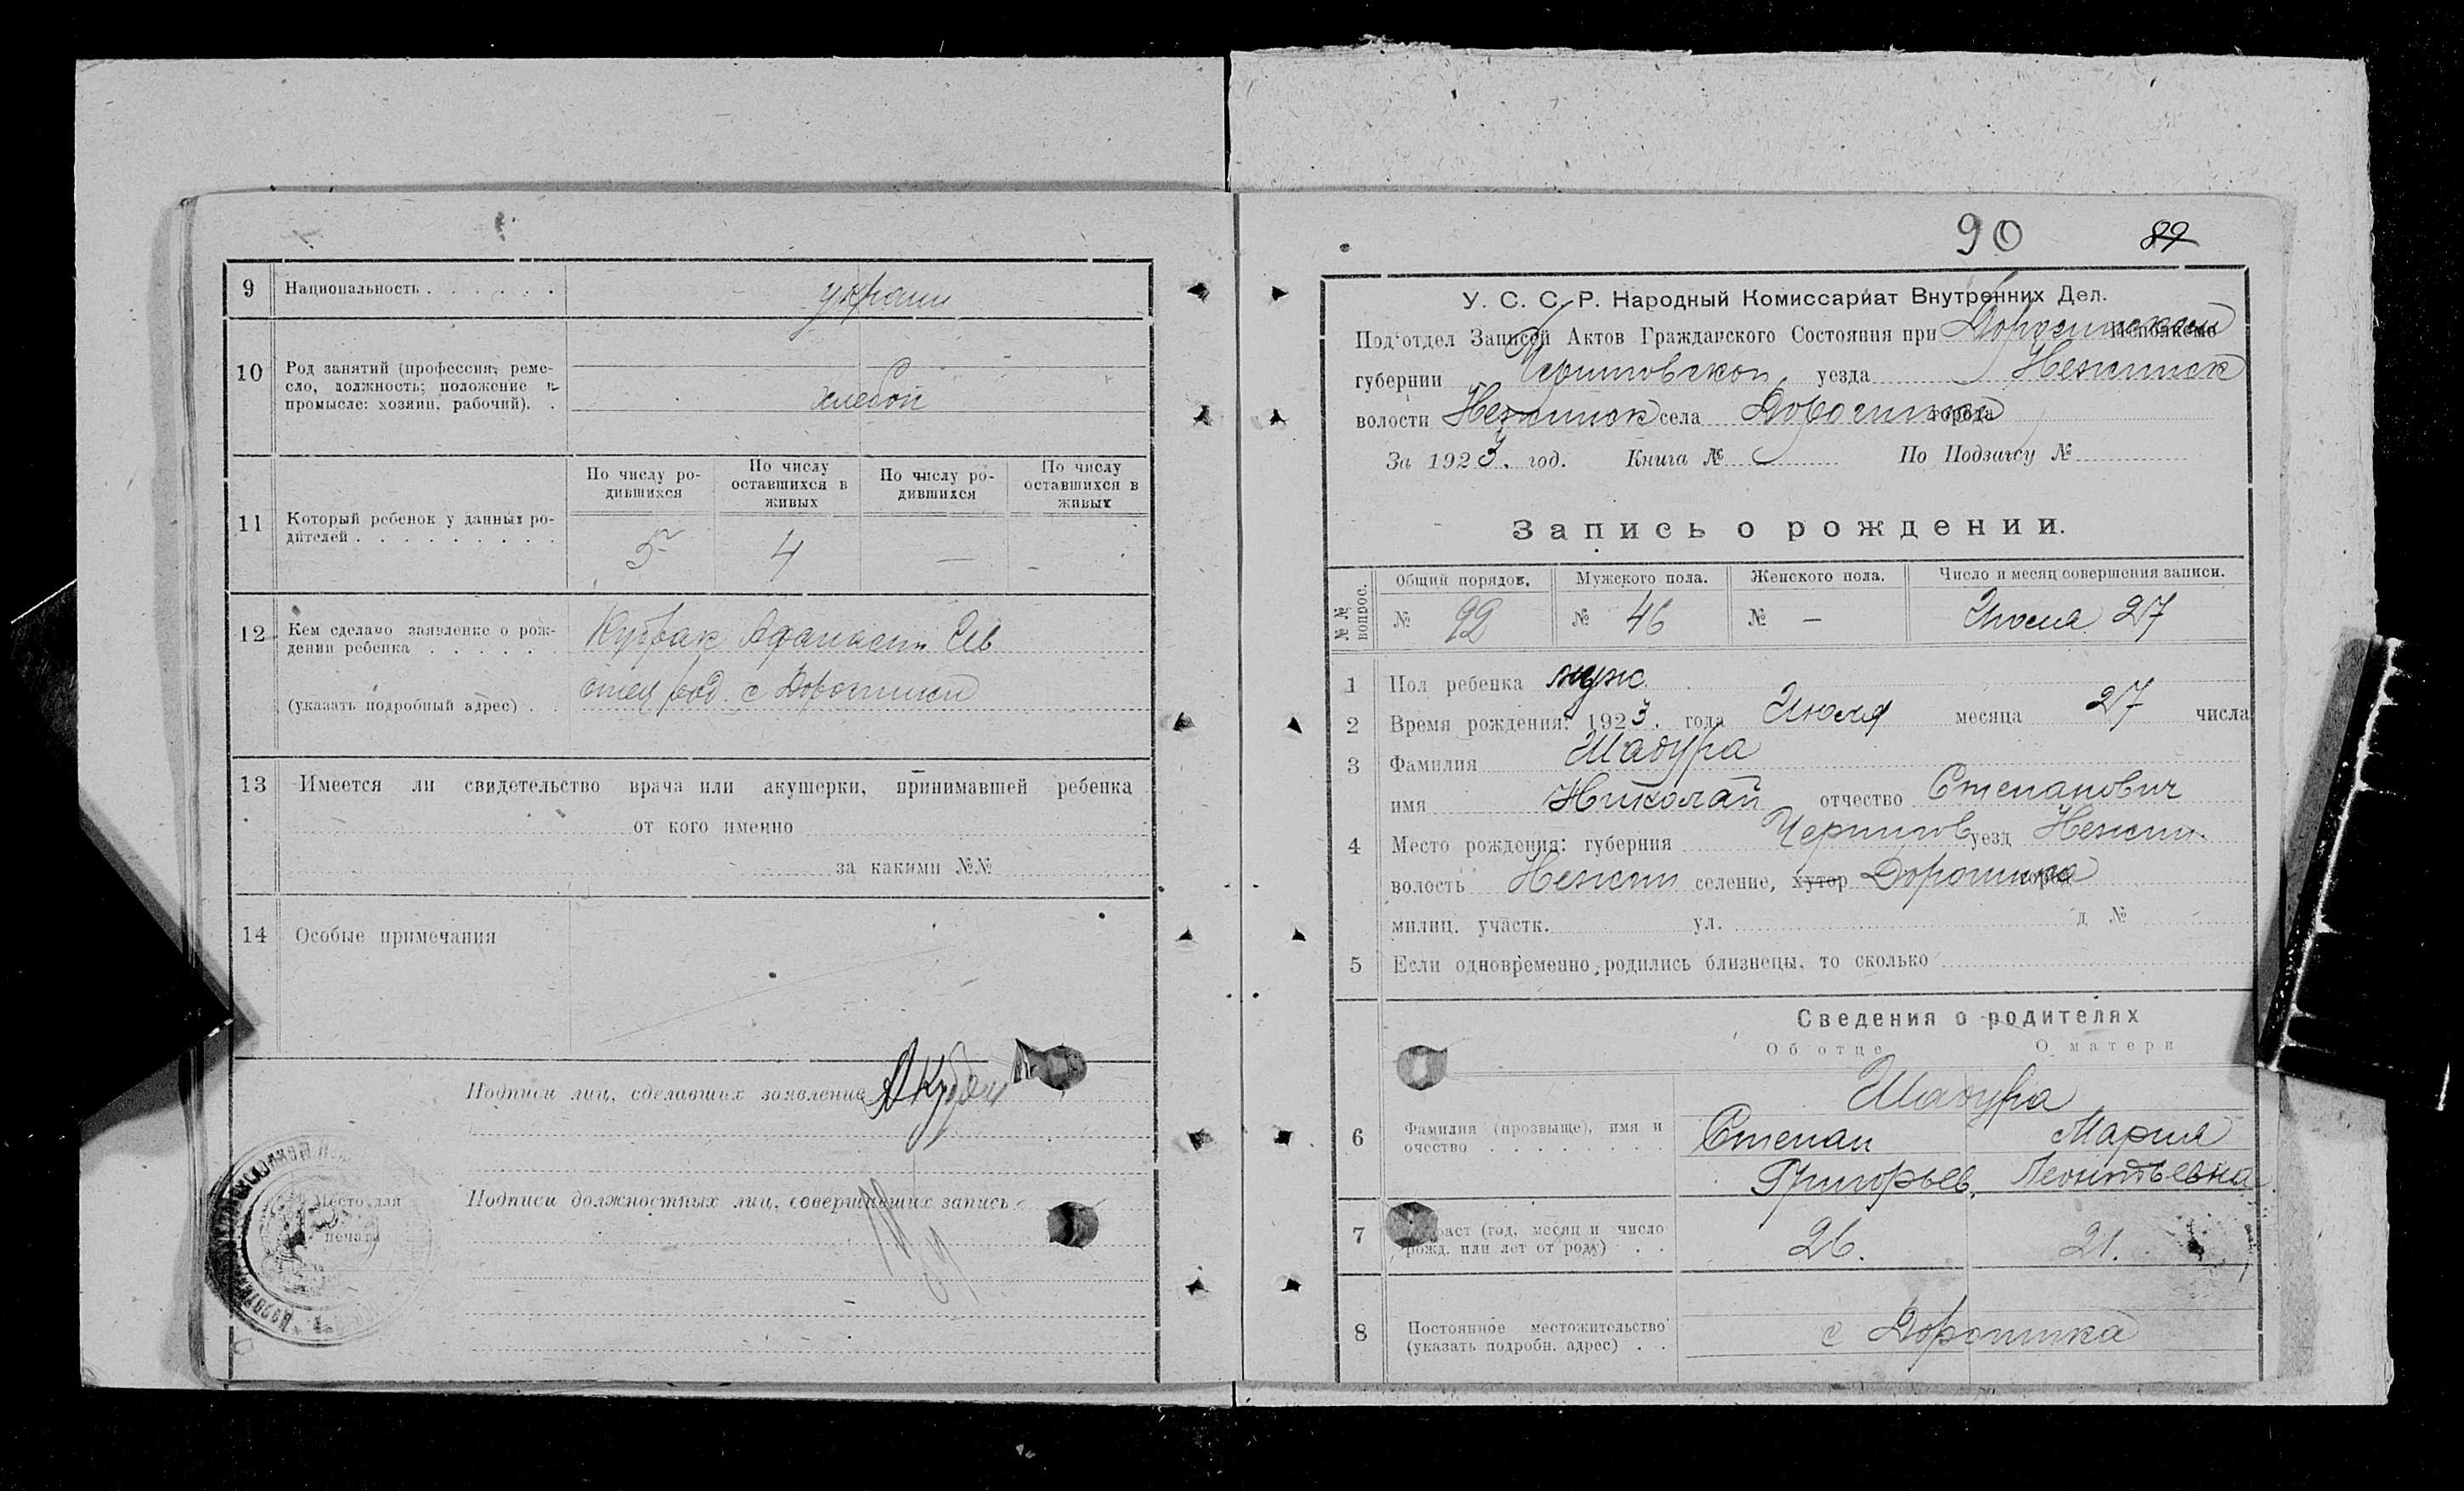 9 Национальность . . . . . .
украин
10 Род занятий (профессия, реме-
сло, должность; положение в
промысле: хозяин, рабочий). .
хлебоп
11 Который ребенок у данных ро-
дителей . . . . . . . . . .
По числу ро-
дившихся
По числу
оставшихся в
живых
По числу ро-
дившихся
По числу
оставшихся в
живых
5 4 — -
12 Кем сделано заявление о рож-
дении ребенка . . . . . .
(указать подробный адрес) . .
Кугвак Афанасии
отец с
13 Имеется ли свидетельство врача или акушерки, принимавшей ребенка
от кого именно
за какими №№
14 Особые примечания
Подписи лиц, сделавших заявление
Место для
печати
Подписи должностных лиц, совершивших запись
90 89
У. С. С. Р. Народный Комиссариат Внутренних Дел.
Под'отдел Записей Актов Гражданского Состояния при Дорогинском исполкоме
губернии Черниговской уезда Нежинск
волости Нежинск села Дорогинка города
За 1923. год. Книга № По Подзагсу №
Запись о рождении.
№№ вопрос.
Общий порядов. Мужского пола. Женского пола. Число и месяц совершения записи.
№ 92 № 46 № — Июля 27
1 Пол ребенка муж
2 Время рождения: 1923. года Июля месяца 27 числа
3 Фамилия Шадура
имя Николай отчество Степанович
4 Место рождения: губерния Чернигов уезд Нежин
волость Нежин селение, хутор Дорогинка город
милиц. участк. ул. д №
5 Если одновременно родились близнецы, то сколько
Сведения о родителях
Об отце О матери
6 Фамилия (прозвыще), имя и
очество . . . . . . . . .
Шадура
Степан Мария
Григорьев. Леонтьевна
7 Возраст (год, месяц и число
рожд. или лет от роду) . .
26. 21.
8 Постоянное местожительство
(указать подробн. адрес) . .
с Дорогинка